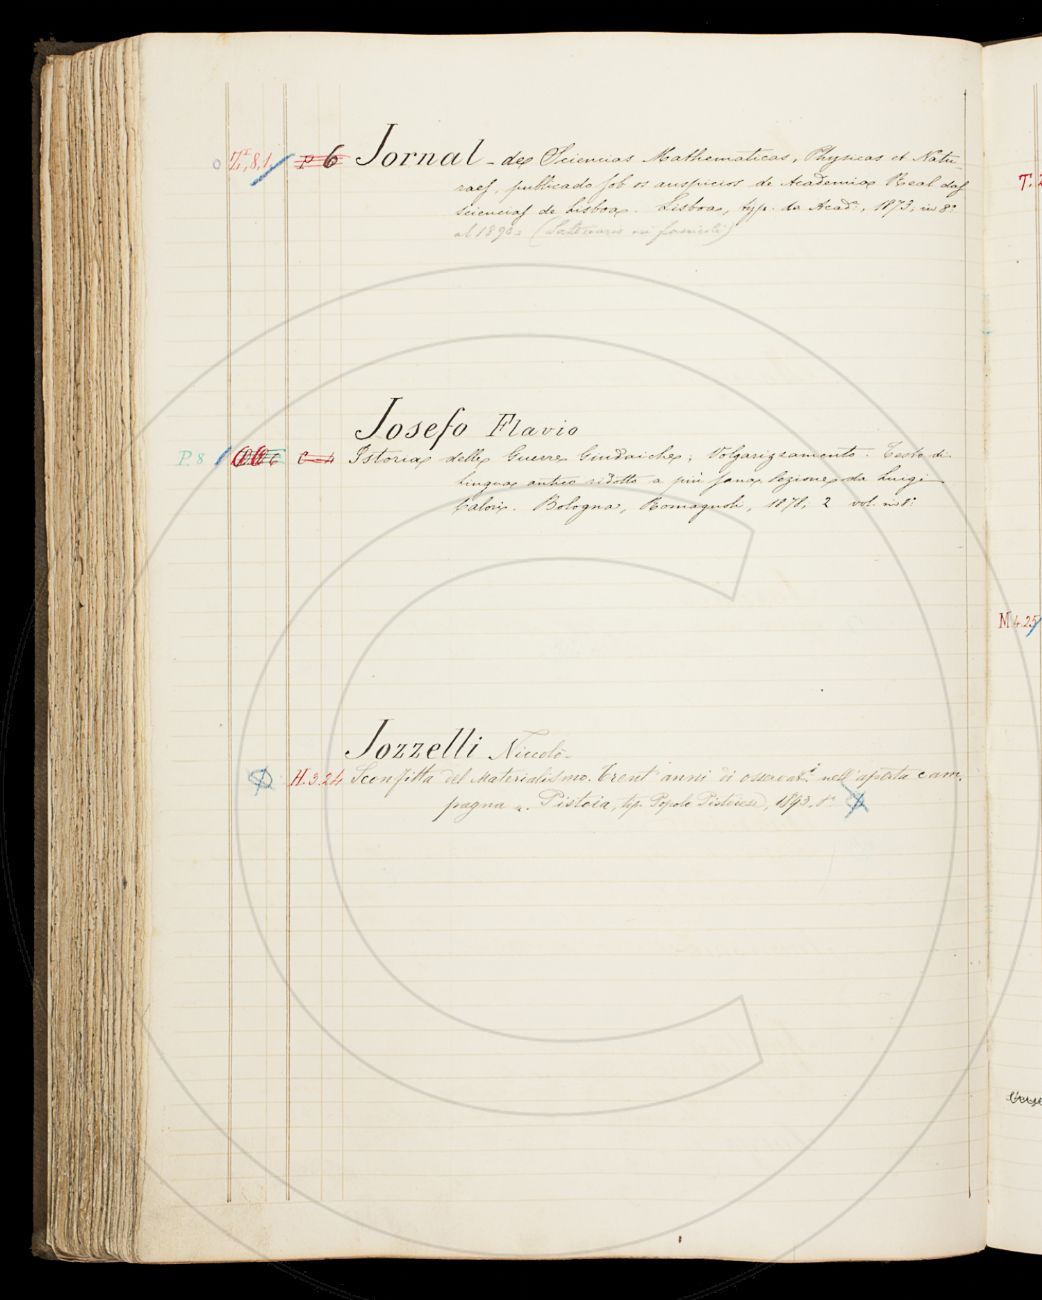 Z.I.8.1 P 6 Jornal - de Sciencias Mathematicas, Physicas et Natu-
raes, publicado sob os auspicios de Academia Real das
sciencias de Lisboa. Lisboa, typ. da Acad.ª, 1873, in 8º
al 1890
Josefo Flavio
P. 8 C-4 Istoria delle Guerre Giudaiche; Volgarizzamento. Testo di
lingua antico ridotto a più sana lezione da Luigi
Calori. Bologna, Romagnoli, 1878, 2 vol. in 8º
Jozzelli Niccolò-
H.3.24 Sconfitta del Materialismo. Trent'anni di osservat.i nell'aperta cam-
pagna. Pistoia, tip. Popolo Pistoiese, 1893, 8º
M.4.25